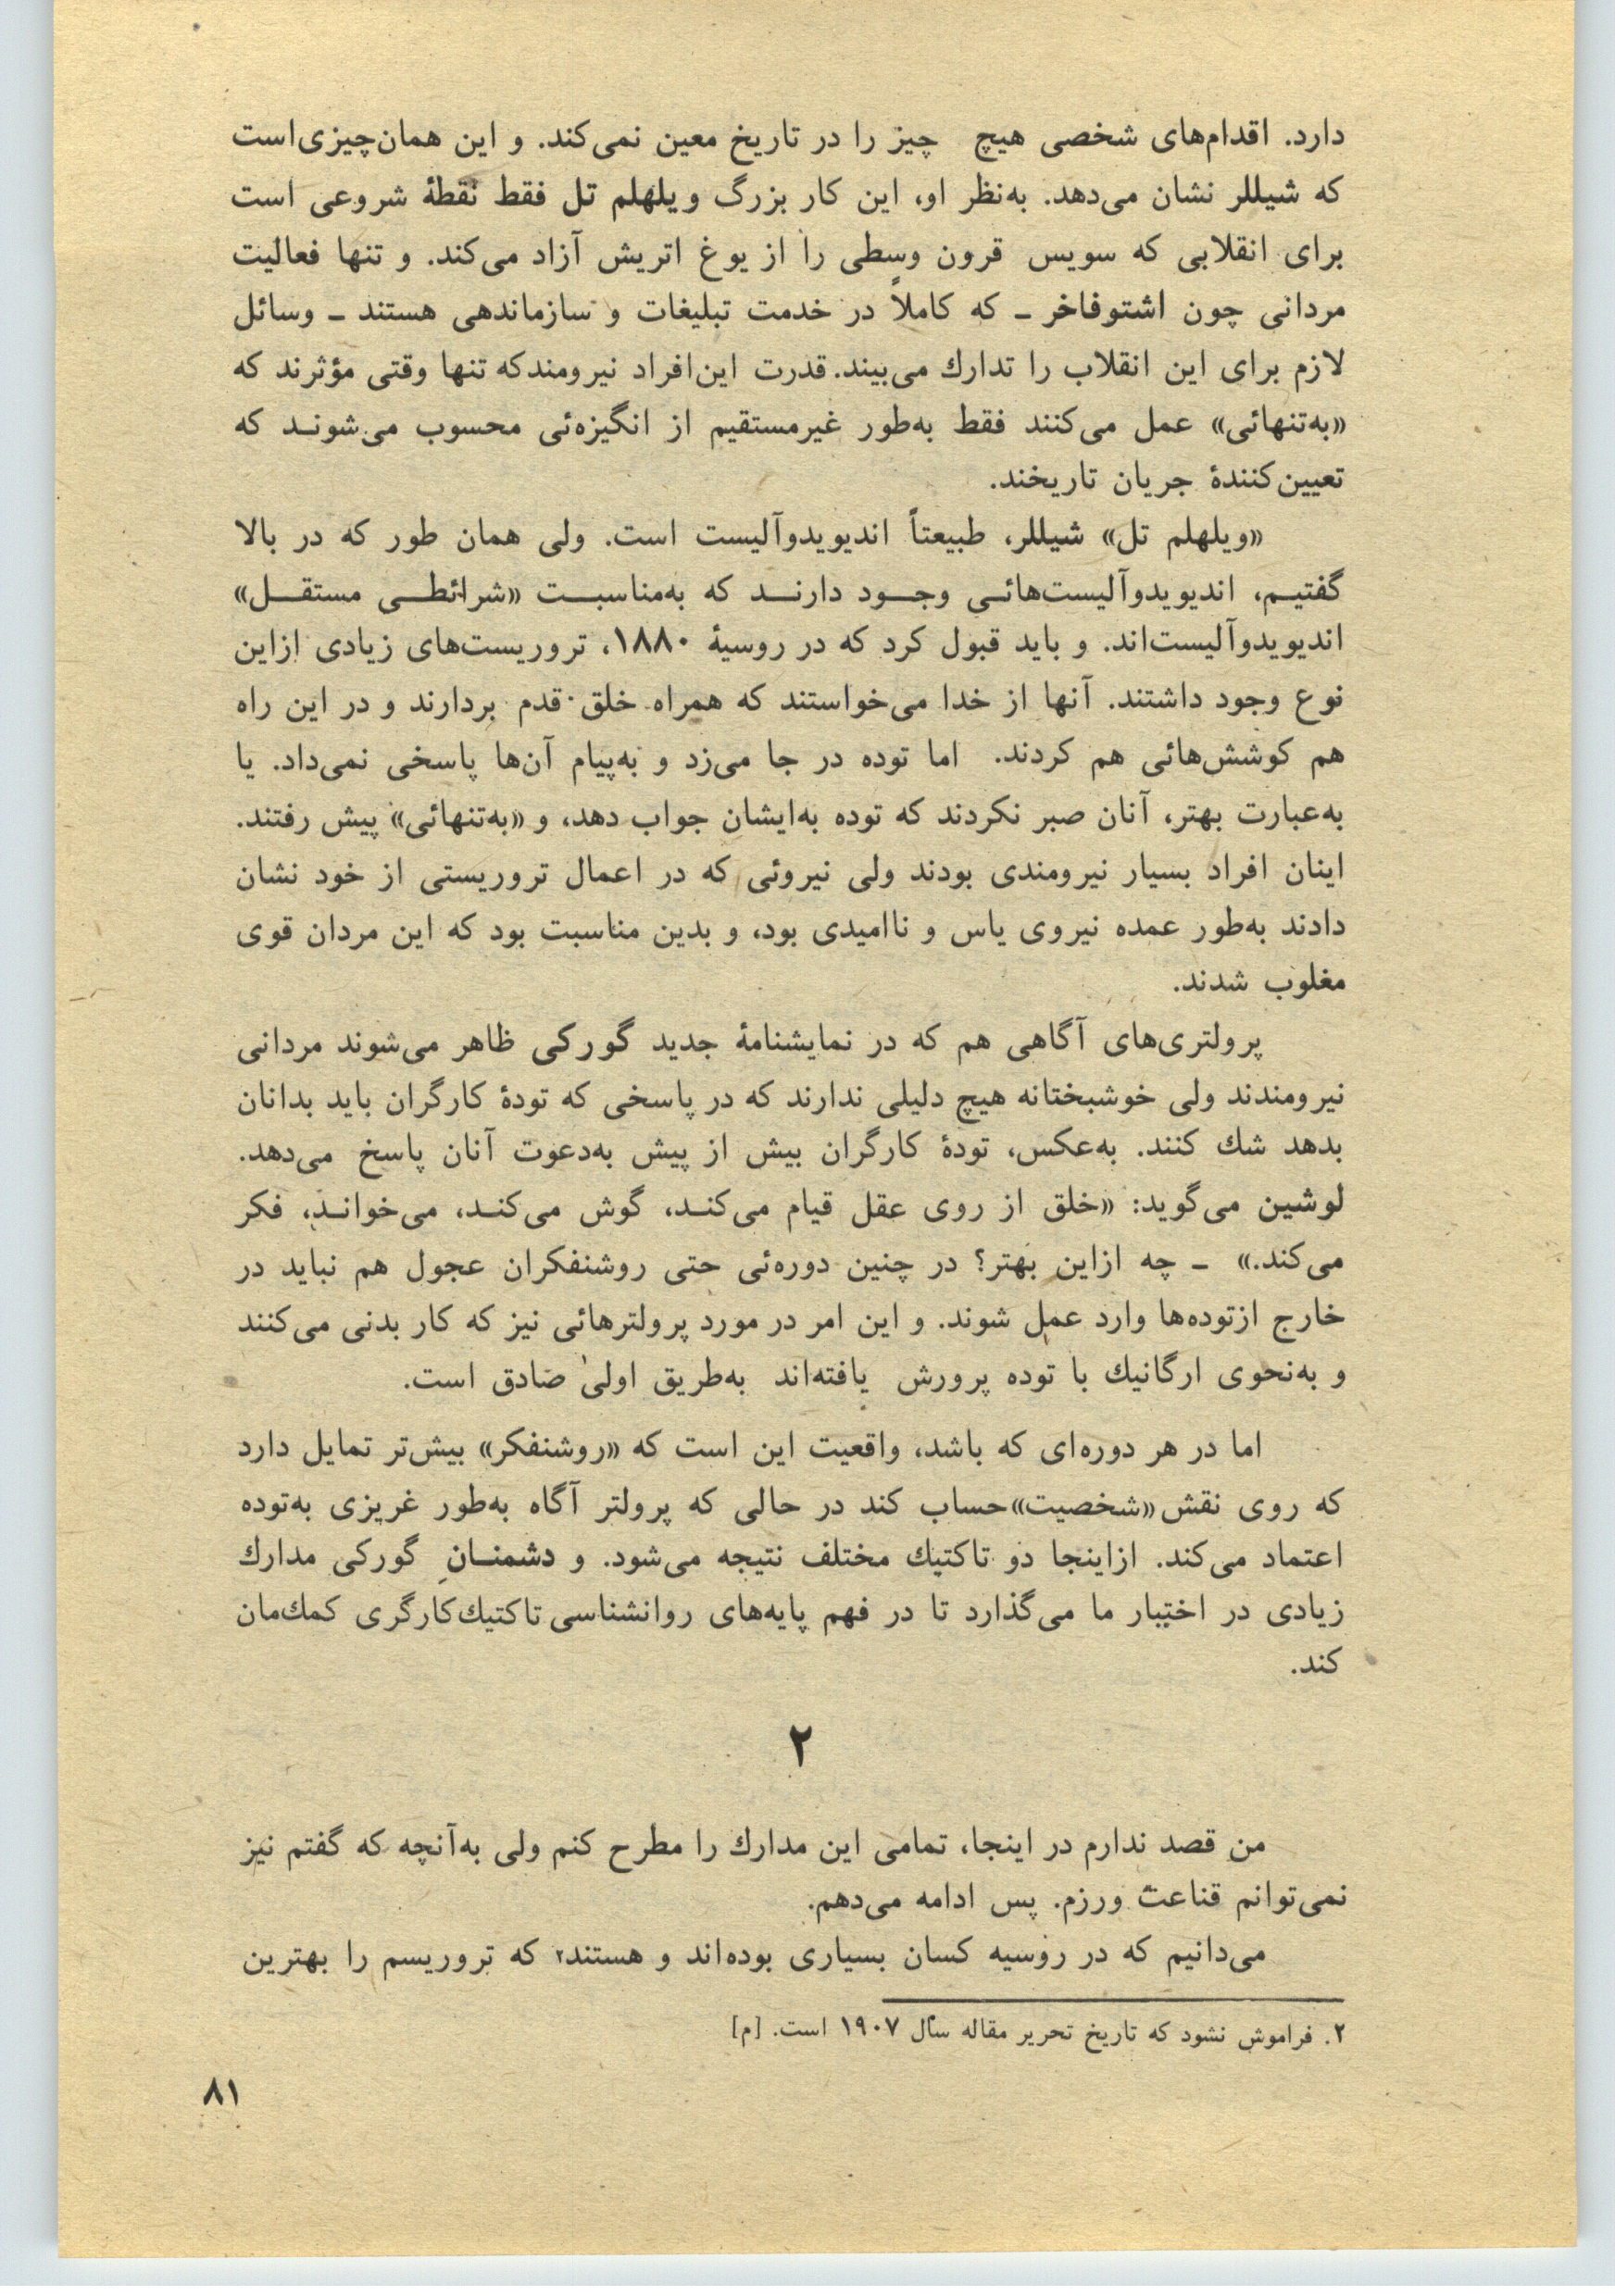 دارد. اقدام‌های شخصی هیچ چیز را در تاریخ معین نمی‌کند. و این همان‌چیزی‌است
که شیللر نشان می‌دهد. به‌نظر او، این کار بزرگ ویلهلم تل فقط نقطهٔ شروعی است
برای انقلابی که سویس قرون وسطی را از یوغ اتریش آزاد می‌کند. و تنها فعالیت
مردانی چون اشتوفاخر ـ که کاملاً در خدمت تبلیغات و سازماندهی هستند ـ وسائل
لازم برای این انقلاب را تدارك می‌بیند. قدرت این‌افراد نیرومندکه تنها وقتی مؤثرند که
«به‌تنهائی» عمل می‌کنند فقط به‌طور غیرمستقیم از انگیزه‌ئی محسوب می‌شوند که
تعیین‌کنندهٔ جریان تاریخند.
«ویلهلم تل» شیللر، طبیعتاً اندیویدوآلیست است. ولی همان طور که در بالا
گفتیم، اندیویدوآلیست‌هائی وجود دارند که به‌مناسبت «شرائطی مستقل»
اندیویدوآلیست‌اند. و باید قبول کرد که در روسیهٔ ۱۸۸۰، تروریست‌های زیادی ازاین
نوع وجود داشتند. آنها از خدا می‌خواستند که همراه خلق قدم بردارند و در این راه
هم کوشش‌هائی هم کردند. اما توده در جا می‌زد و به‌پیام آن‌ها پاسخی نمی‌داد. یا
به‌عبارت بهتر، آنان صبر نکردند که توده به‌ایشان جواب دهد، و «به‌تنهائی» پیش رفتند.
اینان افراد بسیار نیرومندی بودند ولی نیروئی که در اعمال تروریستی از خود نشان
دادند به‌طور عمده نیروی یاس و ناامیدی بود، و بدین مناسبت بود که این مردان قوی
مغلوب شدند.
پرولتری‌های آگاهی هم که در نمایشنامهٔ جدید گورکی ظاهر می‌شوند مردانی
نیرومندند ولی خوشبختانه هیچ دلیلی ندارند که در پاسخی که تودهٔ کارگران باید بدانان
بدهد شك کنند. به‌عکس، تودهٔ کارگران بیش از پیش به‌دعوت آنان پاسخ می‌دهد.
لوشین می‌گوید: «خلق از روی عقل قیام می‌کند، گوش می‌کند، می‌خواند، فکر
می‌کند.» ـ چه ازاین بهتر؟ در چنین دوره‌ئی حتی روشنفکران عجول هم نباید در
خارج ازتوده‌ها وارد عمل شوند. و این امر در مورد پرولترهائی نیز که کار بدنی می‌کنند
و به‌نحوی ارگانیك با توده پرورش یافته‌اند به‌طریق اولیٰ صادق است.
اما در هر دوره‌ای که باشد، واقعیت این است که «روشنفکر» بیش‌تر تمایل دارد
که روی نقش «شخصیت» حساب کند در حالی که پرولتر آگاه به‌طور غریزی به‌توده
اعتماد می‌کند. ازاینجا دو تاکتیك مختلف نتیجه می‌شود. و دشمنانِ گورکی مدارك
زیادی در اختیار ما می‌گذارد تا در فهم پایه‌های روانشناسی تاکتیك کارگری کمك‌مان
کند.
۲
من قصد ندارم در اینجا، تمامی این مدارك را مطرح کنم ولی به‌آنچه که گفتم نیز
نمی‌توانم قناعت ورزم. پس ادامه می‌دهم.
می‌دانیم که در روسیه کسان بسیاری بوده‌اند و هستند۲ که تروریسم را بهترین
۲. فراموش نشود که تاریخ تحریر مقاله سال ۱۹۰۷ است. [م]
۸۱